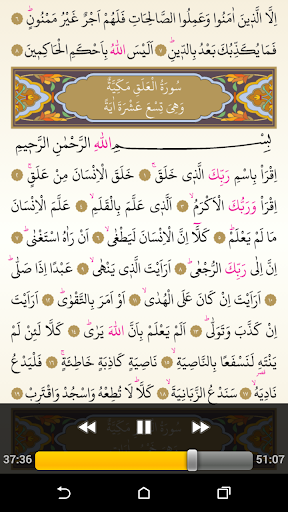 اِلَّا الَّذٖينَ اٰمَنُوا وَعَمِلُوا الصَّالِحَاتِ فَلَهُمْ اَجْرٌ غَيْرُ مَمْنُونٍؕ ٦
فَمَا يُكَذِّبُكَ بَعْدُ بِالدّٖينِؕ ٧ اَلَيْسَ اللّٰهُ بِاَحْكَمِ الْحَاكِمٖينَ ٨
سُورَةُ الْعَلَقِ مَكِّيَّةٌ
وَهِىَ تِسْعَ عَشْرَةَ اٰيَةً
بِسْــــــمِ اللّٰهِ الرَّحْمٰنِ الرَّحٖيمِ
اِقْرَأْ بِاسْمِ رَبِّكَ الَّذٖى خَلَقَۚ ١ خَلَقَ الْاِنْسَانَ مِنْ عَلَقٍۚ ٢
اِقْرَأْ وَرَبُّكَ الْاَكْرَمُۙ ٣ اَلَّذٖى عَلَّمَ بِالْقَلَمِۙ ٤ عَلَّمَ الْاِنْسَانَ
مَا لَمْ يَعْلَمْؕ ٥ كَلَّٓا اِنَّ الْاِنْسَانَ لَيَطْغٰىۙ ٦ اَنْ رَاٰهُ اسْتَغْنٰىؕ ٧
اِنَّ اِلٰى رَبِّكَ الرُّجْعٰىؕ ٨ اَرَاَيْتَ الَّذٖى يَنْهٰىۙ ٩ عَبْدًا اِذَا صَلّٰىؕ
١٠ اَرَاَيْتَ اِنْ كَانَ عَلَى الْهُدٰىۙ ١١ اَوْ اَمَرَ بِالتَّقْوٰىؕ ١٢ اَرَاَيْتَ
اِنْ كَذَّبَ وَتَوَلّٰىؕ ١٣ اَلَمْ يَعْلَمْ بِاَنَّ اللّٰهَ يَرٰىؕ ١٤ كَلَّا لَئِنْ لَمْ
يَنْتَهِ لَنَسْفَعًا بِالنَّاصِيَةِۙ ١٥ نَاصِيَةٍ كَاذِبَةٍ خَاطِئَةٍۚ ١٦ فَلْيَدْعُ
نَادِيَهُۙ ١٧ سَنَدْعُ الزَّبَانِيَةَۙ ١٨ كَلَّاؕ لَا تُطِعْهُ وَاسْجُدْ وَاقْتَرِبْ ١٩
37:36 51:07